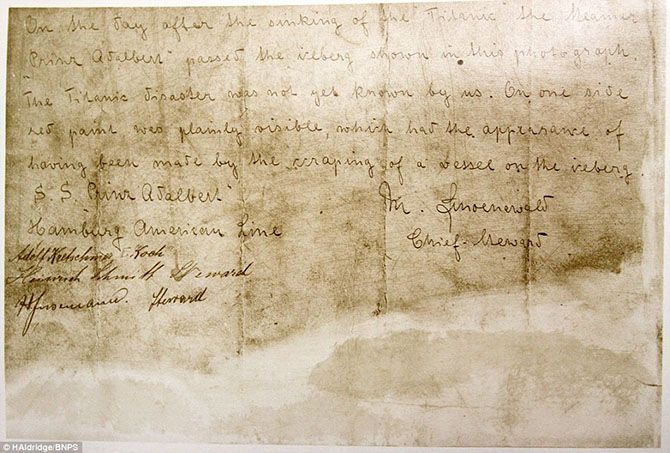 On the day after the sinking of the Titanic the steamer
"Prinz Adalbert" passed the iceberg shown in this photograph.
The Titanic disaster was not yet known by us. On one side
red paint was plainly visible, which had the appearance of
having been made by the scraping of a vessel on the iceberg.
S. S. "Prinz Adalbert" M. Linoenewald
Hamburg American Line Chief-Steward
Adolf Koch
Heinrich Schmidt Steward
Steward
© HAldridge/BNPS